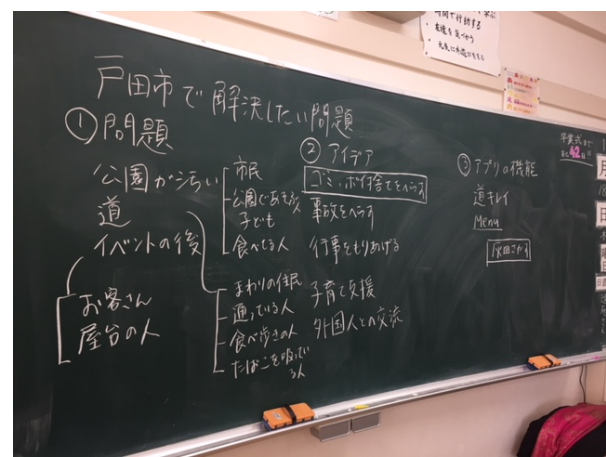 時間で行動する
・友達を気づかう
・元気に
戸田市で解決したい問題
①問題
公園が汚い
道
イベントの後
お客さん
屋台の人
市民
公園であそぶ
子ども
食べてる人
まわりの住民
通っている人
食べ歩きの人
たばこを吸ってい
る人
② アイデア
ゴミ・ポイ捨てをへらす
事故をへらす
行事をもりあげる
子育て支援
外国人との交流
③ アプリの機能
道キレイ
Menu
卒業式まで
あと42日
月
日